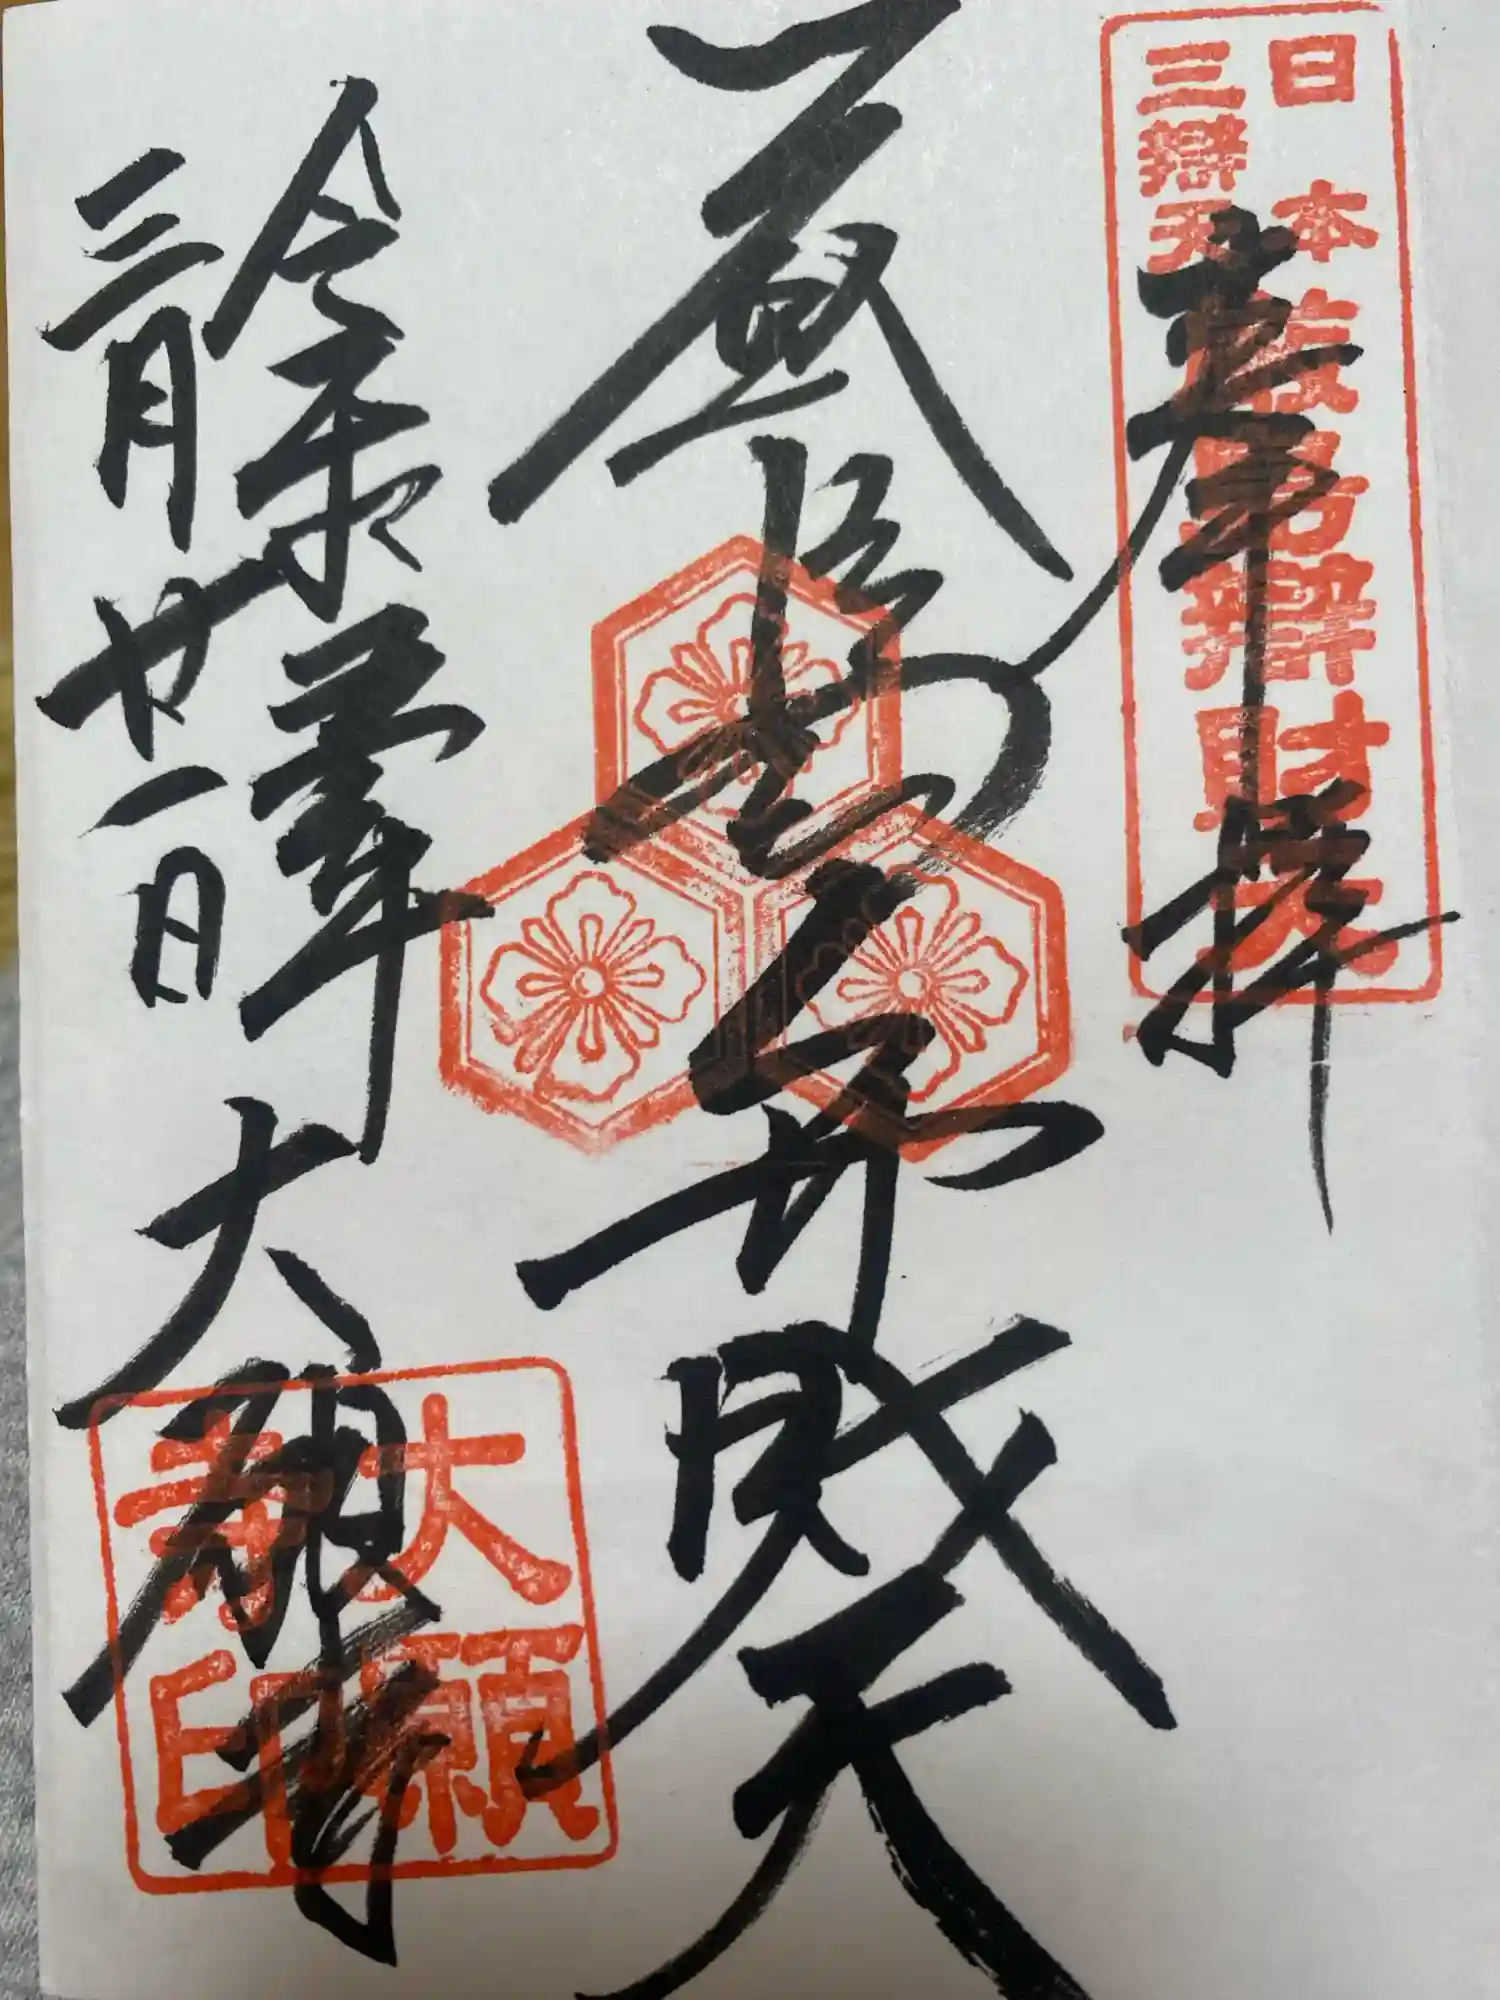 奉拝
日本厳島辯財天
三辯天
厳島大弁財天
令和六年
三月廿一日 大願寺
大願寺印